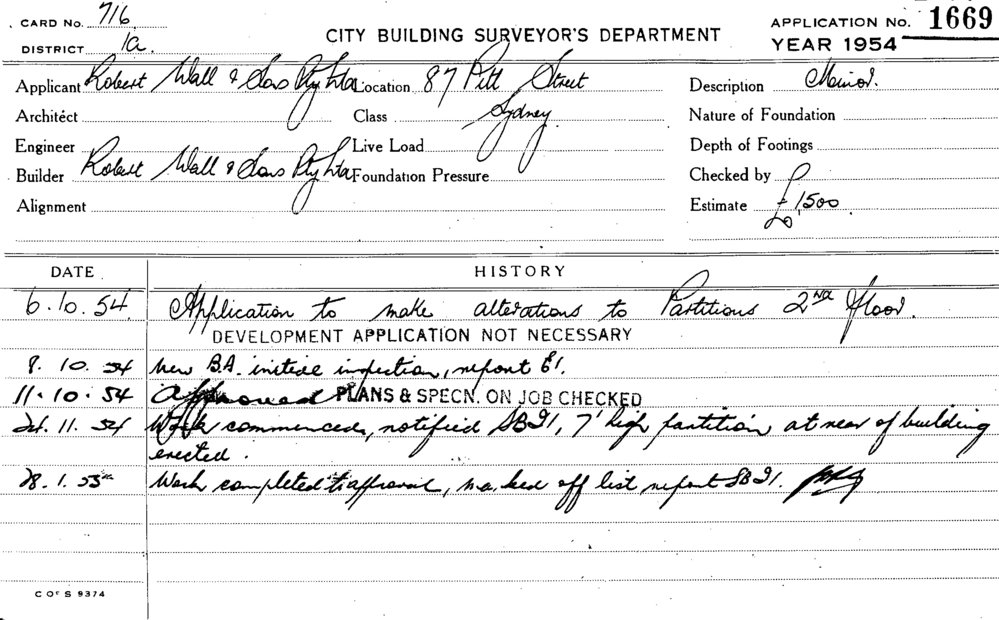 CARD No. 716
DISTRICT 1a.
CITY BUILDING SURVEYOR'S DEPARTMENT
APPLICATION No. 1669
YEAR 1954
Applicant Robert Wall & Sons Pty Ltd Location 87 Pitt Street Description Minor.
Architect Class Sydney Nature of Foundation
Engineer Live Load Depth of Footings
Builder Robert Wall & Sons Pty Ltd Foundation Pressure Checked by
Alignment Estimate £1,500
DATE HISTORY
6.10.54 Application to make alterations to Partitions 2nd Floor.
DEVELOPMENT APPLICATION NOT NECESSARY
8.10.54 New B.A. initial inspection, report
11.10.54 Approved PLANS & SPECN. ON JOB CHECKED
24.11.54 Work commenced, notified 7' high partition at rear of building
erected.
28.1.55 Work completed to approval, marked off list report
C OF S 9374